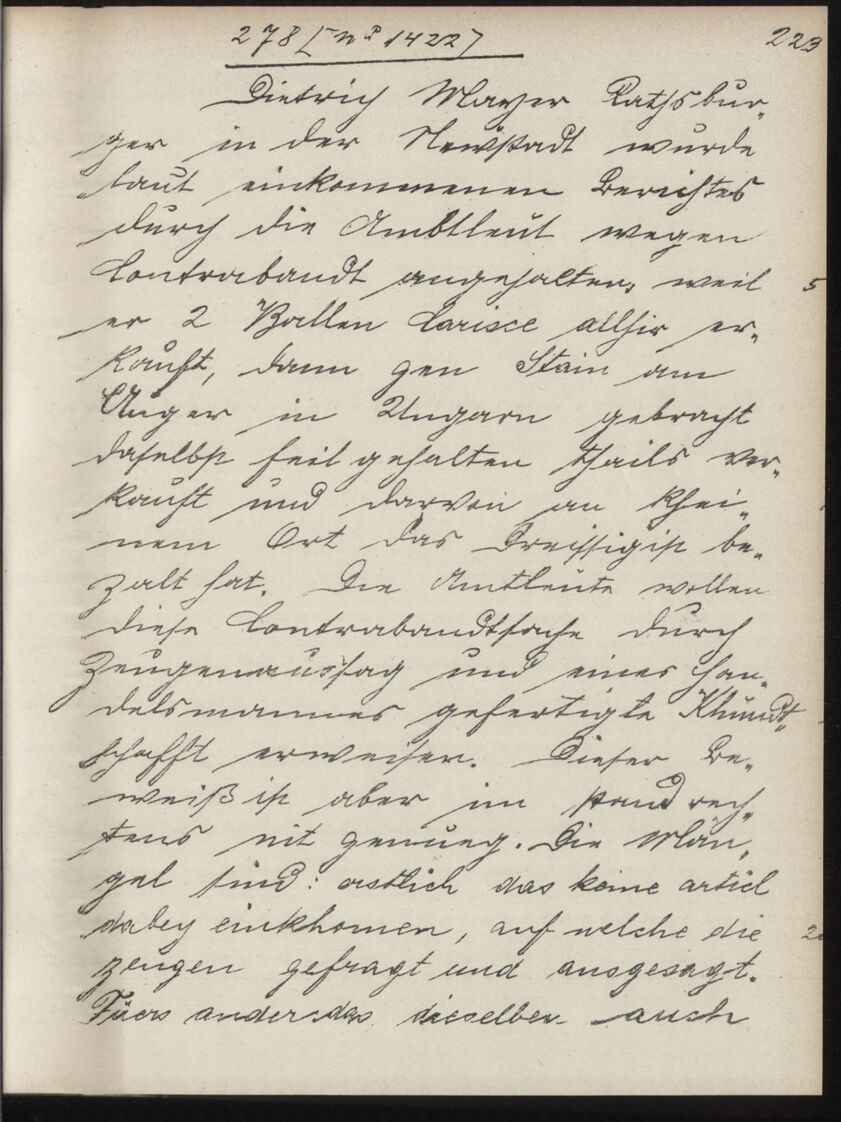 278 [No 1422] 223
Dietrich Mayer Rathsbur-
ger in der Newstadt wurde
laut einkommenen Berichtes
durch die Ambtleut wegen
Contrabandt angehalten, weil 5
er 2 Ballen Carisee allhir er-
kauft, dann gen Stain am
Anger in Ungarn gebracht
daselbst feil gehalten thails ver-
kauft und darvon an khei-
nem Ort das Dreissigist be-
zalt hat. Die Amtleute wollen
diese Contrabandtsache durch
Zeugenaussag und eines han-
delsmannes gefertigte Khundt-
schafft erweisen. Dieser Be-
weiß ist aber im stand rech-
tens nit genueg. Die Män-
gel sind: erstlich das keine articl
dabey einkhomen, auf welche die 20
zeugen gefragt und ausgesagt.
Füers ander das dieselben auch